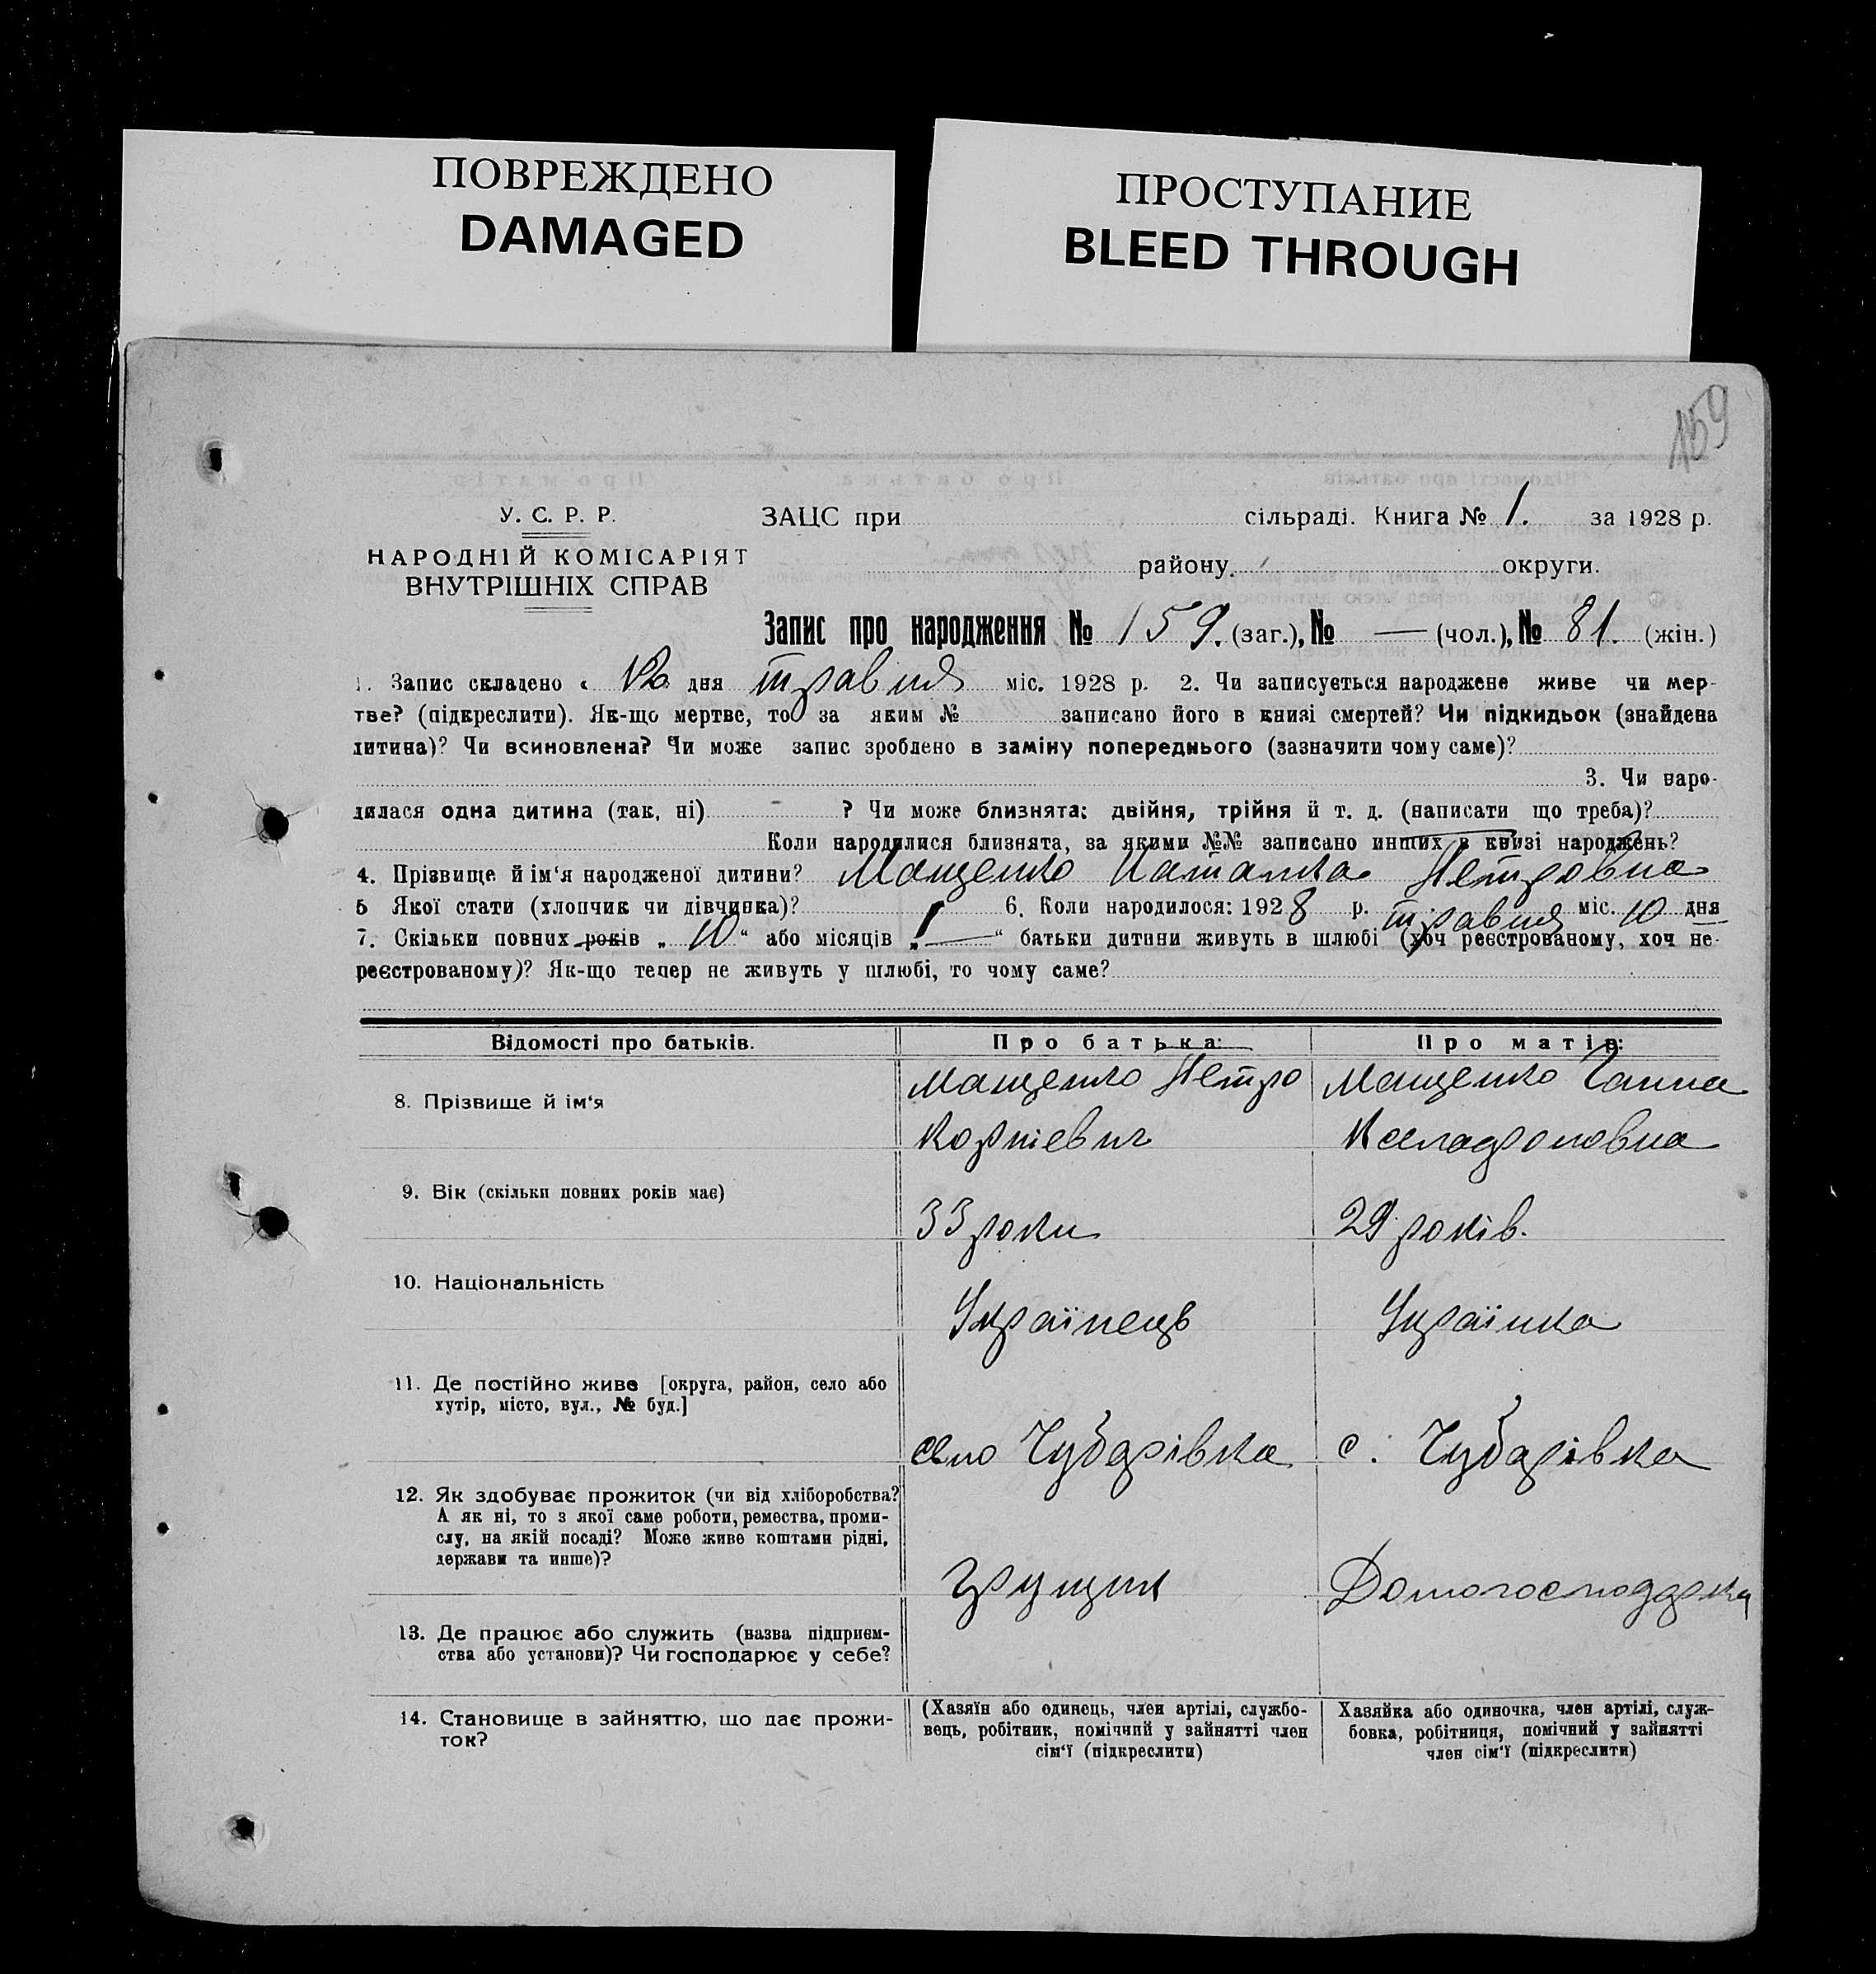 ПОВРЕЖДЕНО
DAMAGED
ПРОСТУПАНИЕ
BLEED THROUGH
159
У. С. Р. Р.
НАРОДНІЙ КОМІСАРІЯТ
ВНУТРІШНІХ СПРАВ
ЗАЦС при сільраді. Книга № 1. за 1928 р.
району округи.
Запис про народження № 159. (заг.), № — (чол.), № 81. (жін.)
1. Запис складено « 12 дня травня міс. 1928 р. 2. Чи записується народжене живе чи мер-
тве? (підкреслити). Як-що мертве, то за яким № записано його в книзі смертей? Чи підкидьок (знайдена
дитина)? Чи всиновлена? Чи може запис зроблено в заміну попереднього (зазначити чому саме)?
3. Чи наро-
дилася одна дитина (так, ні) - ? Чи може близнята: двійня, трійня й т. д. (написати що треба)?
Коли народилися близнята, за якими №№ записано инших в книзі народжень?
4. Прізвище й ім‘я народженої дитини? Мащенко Наталка Петровна
5 Якої стати (хлопчик чи дівчинка)? 6. Коли народилося: 1928 р. травня міс. 10 дня
7. Скільки повних років „ 10 “ або місяців „ — “ батьки дитини живуть в шлюбі (хоч реєстрованому, хоч не-
реєстрованому)? Як-що тепер не живуть у шлюбі, то чому саме?
Відомості про батьків. Про батька: Про матір:
8. Прізвище й ім‘я
Мащенко Петро
Корнієвич
Мащенко Ганна
9. Вік (скільки повних років має)
33 роки
29 років.
10. Національність
Українець
Українка
11. Де постійно живе [округа, район, село або
хутір, місто, вул., № буд.]
село Чубарівка
с. Чубарівка
12. Як здобуває прожиток (чи від хліборобства?
А як ні, то з якої саме роботи, ремества, проми-
слу, на якій посаді? Може живе коштами рідні,
держави та инше)?
Домогосподарка
13. Де працює або служить (назва підприєм-
ства або установи)? Чи господарює у себе?
14. Становище в зайняттю, що дає прожи-
ток?
(Хазяїн або одинець, член артілі, службо-
вець, робітник, помічний у зайнятті член
сім‘ї (підкреслити)
Хазяйка або одиночка, член артілі, служ-
бовка, робітниця, помічний у зайнятті
член сім‘ї (підкреслити)